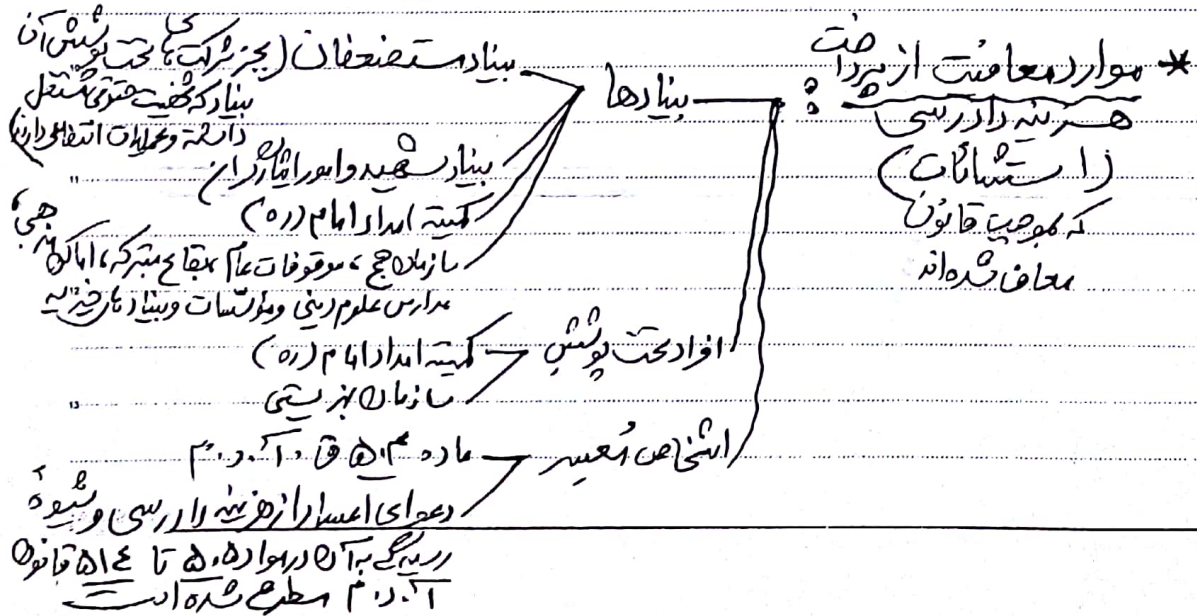 * موارد معافیت از پرداخت
هزینه دادرسی :
(استثنائات)
که بموجب قانون
معاف شده اند
بنیادها
بنیاد مستضعفان (بجز شرکت های تحت پوشش آن
بنیاد که شخصیت حقوقی مستقل
داشته و عملیات انتفاعی دارند)
بنیاد شهید و امور ایثارگران
کمیته امداد امام (ره)
سازمان حج ، موقوفات عام ، بقاع متبرکه ، اماکن مذهبی ،
مدارس علوم دینی و مؤسسات و بنیادهای خیریه
افراد تحت پوشش
کمیته امداد امام (ره)
سازمان بهزیستی
اشخاص مُعسِر
ماده ۵۰۴ ق . آ . د . م
دعوای اعسار از هزینه دادرسی و شیوهٔ
رسیدگی به آن در مواد ۵۰۵ تا ۵۱۴ قانون
آ . د . م مطرح شده است
11
13